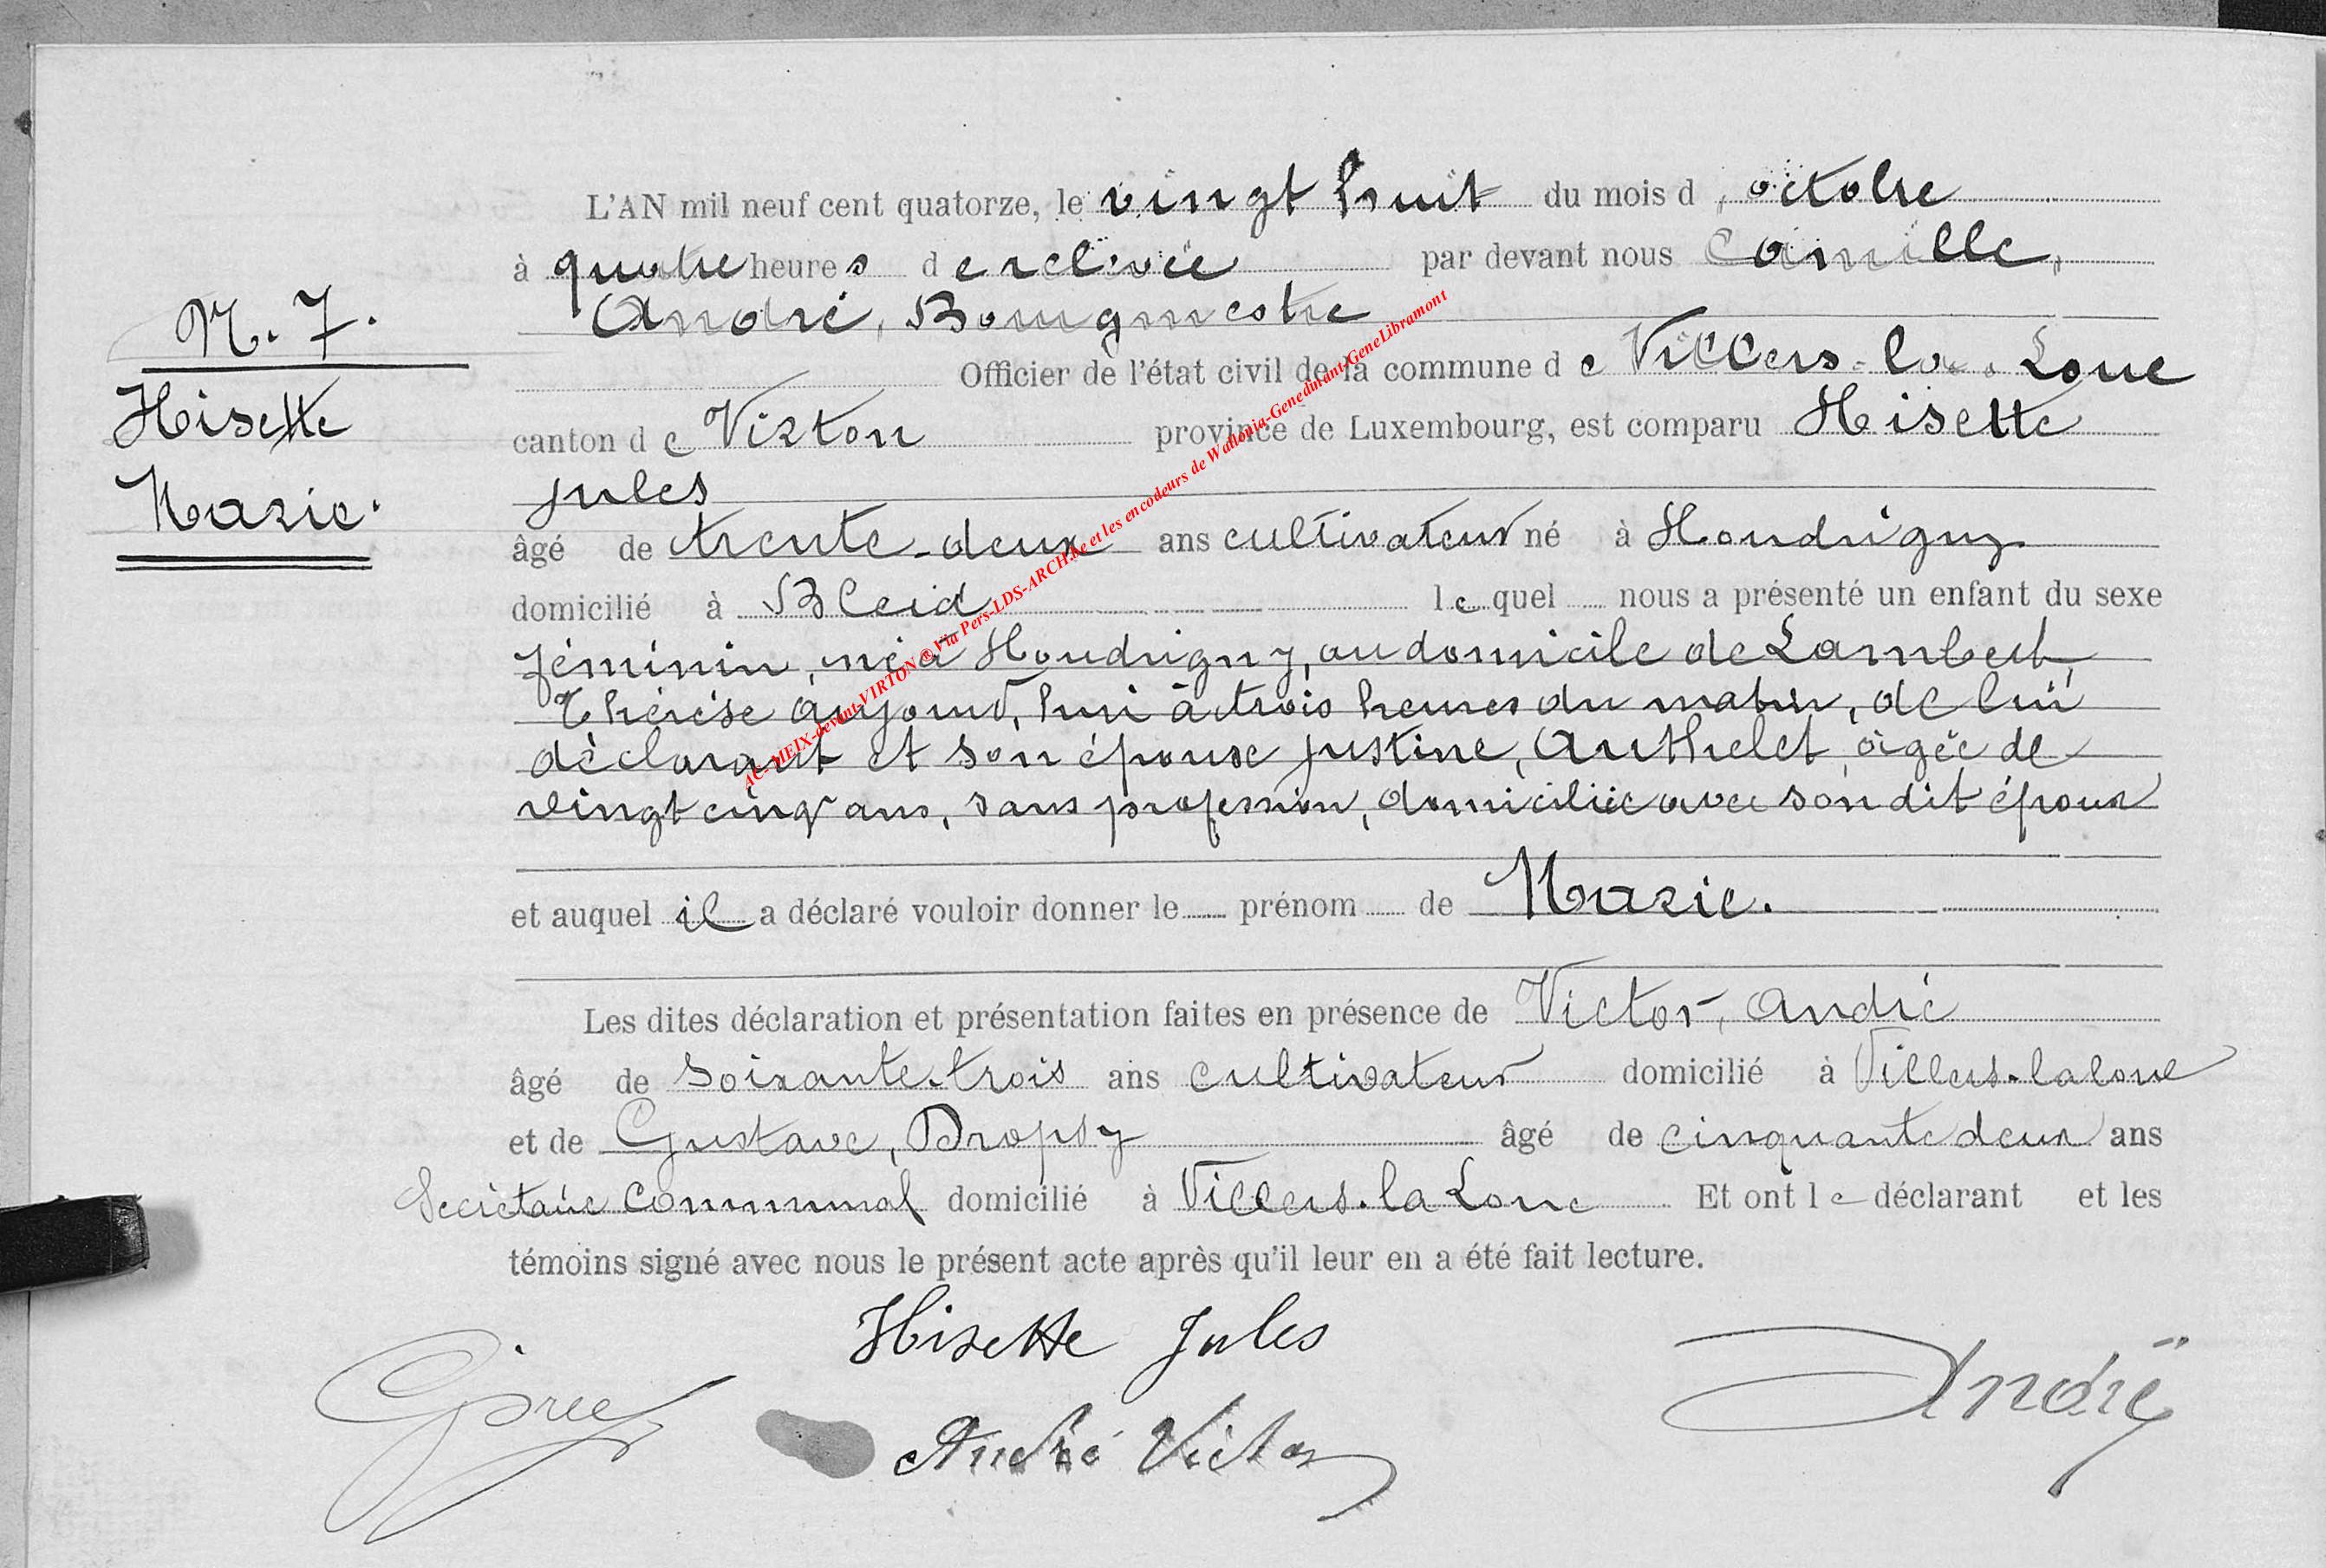 L'AN mil neuf cent quatorze, le vingt huit du mois d'octobre
à quatre heures de relevée par devant nous Camille,
André, Bourgmestre
N. 7.
Officier de l'état civil de la commune de Villers-la-Loue
Hisette
canton de Virton province de Luxembourg, est comparu Hisette
Jules
Marie.
âgé de trente-deux ans cultivateur né à Houdrigny
domicilié à Bleid lequel nous a présenté un enfant du sexe
féminin, né à Houdrigny, au domicile de Lambert,
Thérèse aujourd'hui à trois heures du matin, de lui
déclarant et son épouse Justine, Authelet, âgée de
vingt cinq ans, sans profession, domiciliée avec son dit époux
et auquel il a déclaré vouloir donner le prénom de Marie.
Les dites déclaration et présentation faites en présence de Victor, André
âgé de soixante-trois ans cultivateur domicilié à Villers-la loue
et de Gustave, Dropsy âgé de cinquante deux ans
Secrétaire communal domicilié à Villers-la Loue Et ont le déclarant et les
témoins signé avec nous le présent acte après qu'il leur en a été fait lecture.
Hisette Jules
André
André Victor
AC-MEIX-devant-VIRTON ® Via Pers-LDS-ARCH.be et les encodeurs de Wallonia-Genedinant-GeneLibramont